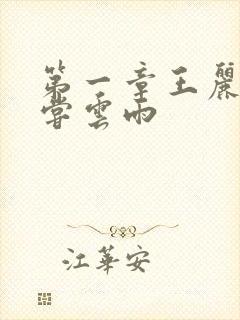 第一章王麗
嘗雲雨
江華安